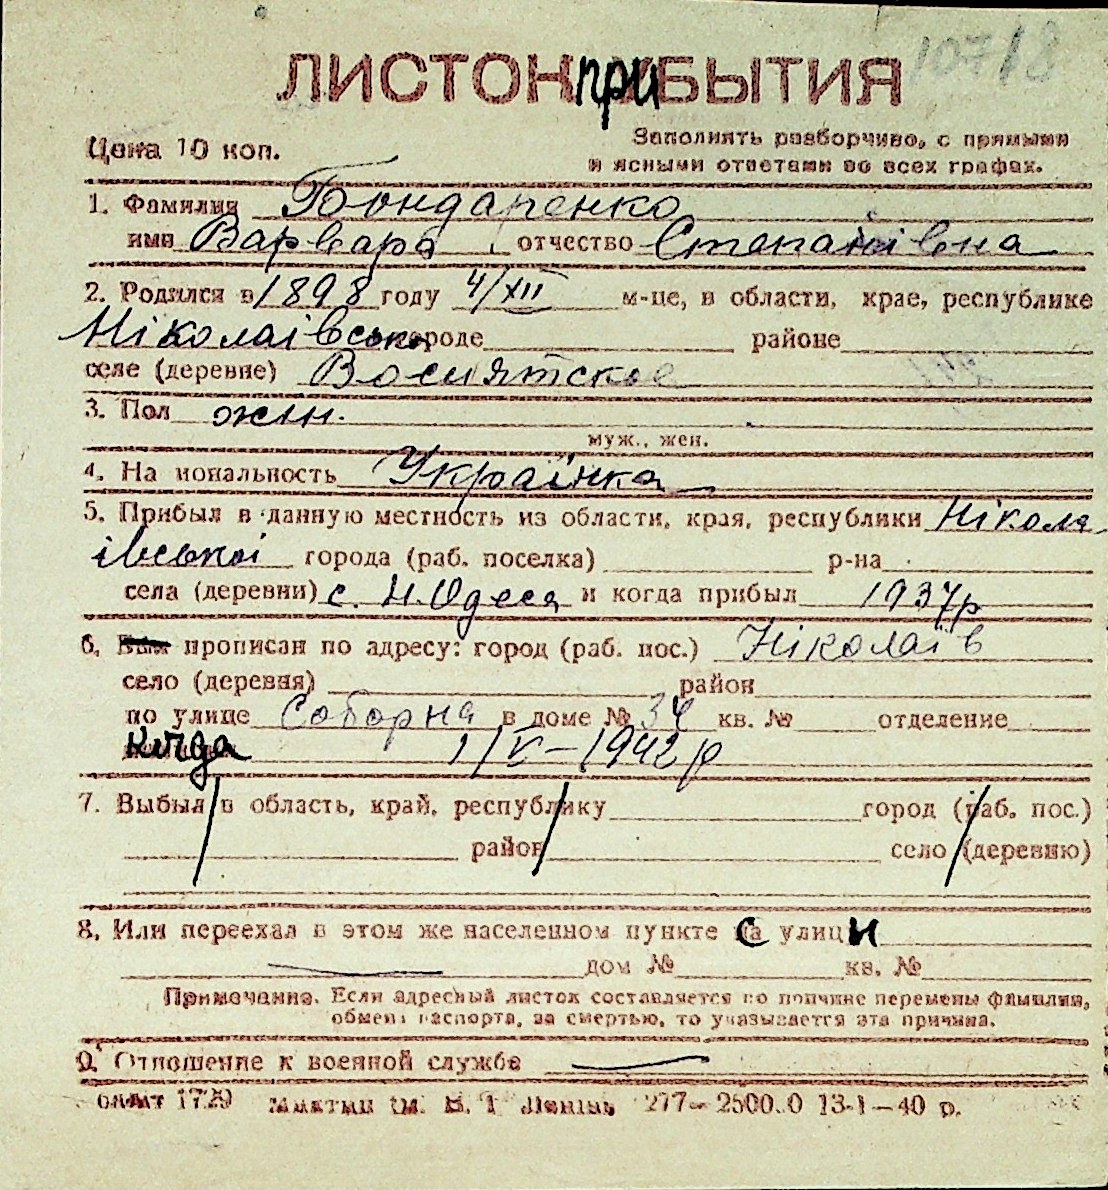 10718
ЛИСТОК ПРИБЫТИЯ
Цена 10 коп.
Заполнять разборчиво, с прямыми
и ясными ответами во всех графах.
1. Фамилия Бондаренко
имя Варвара отчество Степанівна
2. Родился в 1898 году 4/XII м-це, в области, крае, республике
Ніколаівська городе районе
селе (деревне) Восиятское
3. Пол жін.
муж., жен.
4. Национальность Українка
5. Прибыл в данную местность из области, края, республики Нікола
івської города (раб. поселка) р-на
села (деревни) с. Н. Одеса и когда прибыл 1937р
6. прописан по адресу: город (раб. пос.) Ніколаїв
село (деревня) район
по улице Соборна в доме № 34 кв. № отделение
когда 1/V-1942р
7. Выбыл в область, край, республику город (раб. пос.)
район село (деревню)
8. Или переехал в этом же населенном пункте с улици
дом № кв. №
Примечание. Если адресный листок составляется по причине перемены фамилии,
обмена паспорта, за смертью, то указывается эта причина.
9. Отношение к военной службе
1729 ім. В. І. Леніна 277—25000 13-I—40 р.